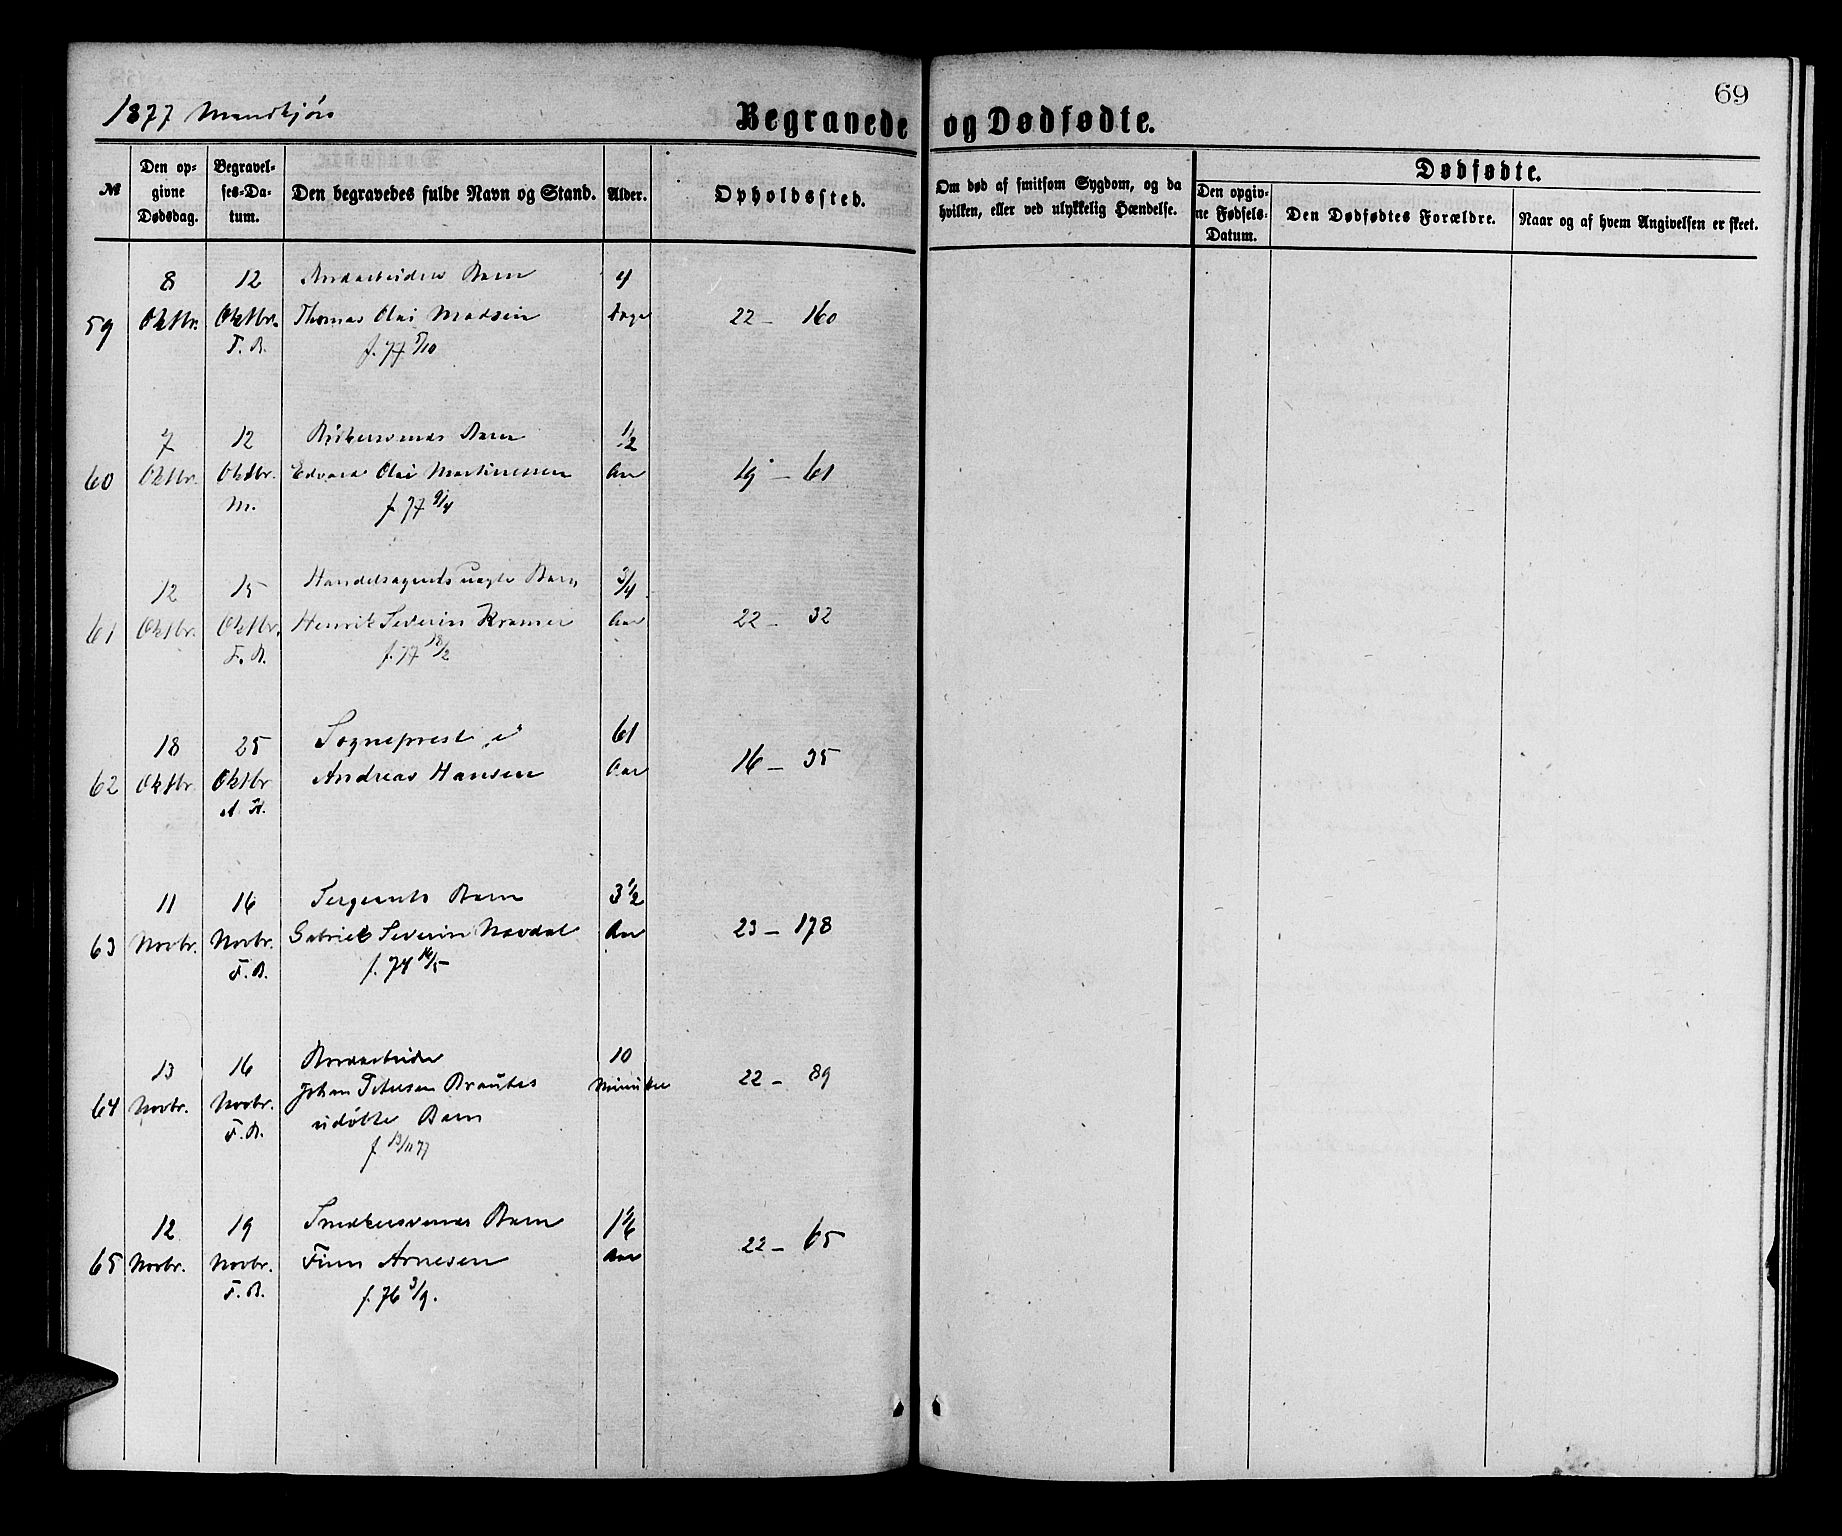 69
1877 Mandkjøn
Begravede og Dødfødte.
№
Den opgivne Dødsdag.
Begravelses-Datum.
Den begravedes fulde Navn og Stand.
Alder.
Opholdssted.
Om død af smitsom Sygdom, og da hvilken, eller ved ulykkelig Hændelse.
Dødfødte.
Den opgivne Fødsels-Datum.
Den Dødfødtes Forældre.
Naar og af hvem Angivelsen er skeet.
8 12 Barn 4
59 Oktbr. Oktbr. Thomas Olai Madsen Dage 22 – 160
F. B. f. 77 5/10
7 12 Barn 1/2
60 Oktbr. Oktbr. Edvard Olai Martinessen Aar 19 – 61
M. f. 77 9/4
12 15 Handelsagents uægte Barn 3/4
61 Oktbr. Oktbr. Henrik Severin Kramer Aar 22 – 32
F. B. f. 77 18/2
18 25 Sogneprest 61
62 Oktbr. Oktbr Andreas Hansen Aar 16 – 35
A. H.
11 16 Sergeants Barn 3 1/2
63 Novbr. Novbr. Gabriel Severin Aar 23 – 178
F. B. f. 74 16/5
13 16 10
64 Novbr. Novbr. Johan Petersen Minutter 22 – 89
F. B. udøbte Barn
f. 13/11 77
12 19 Smedesvends Barn 1 1/6
65 Novbr. Novbr. Finn Arnesen Aar 22 – 65
F. B. f. 76 3/9.